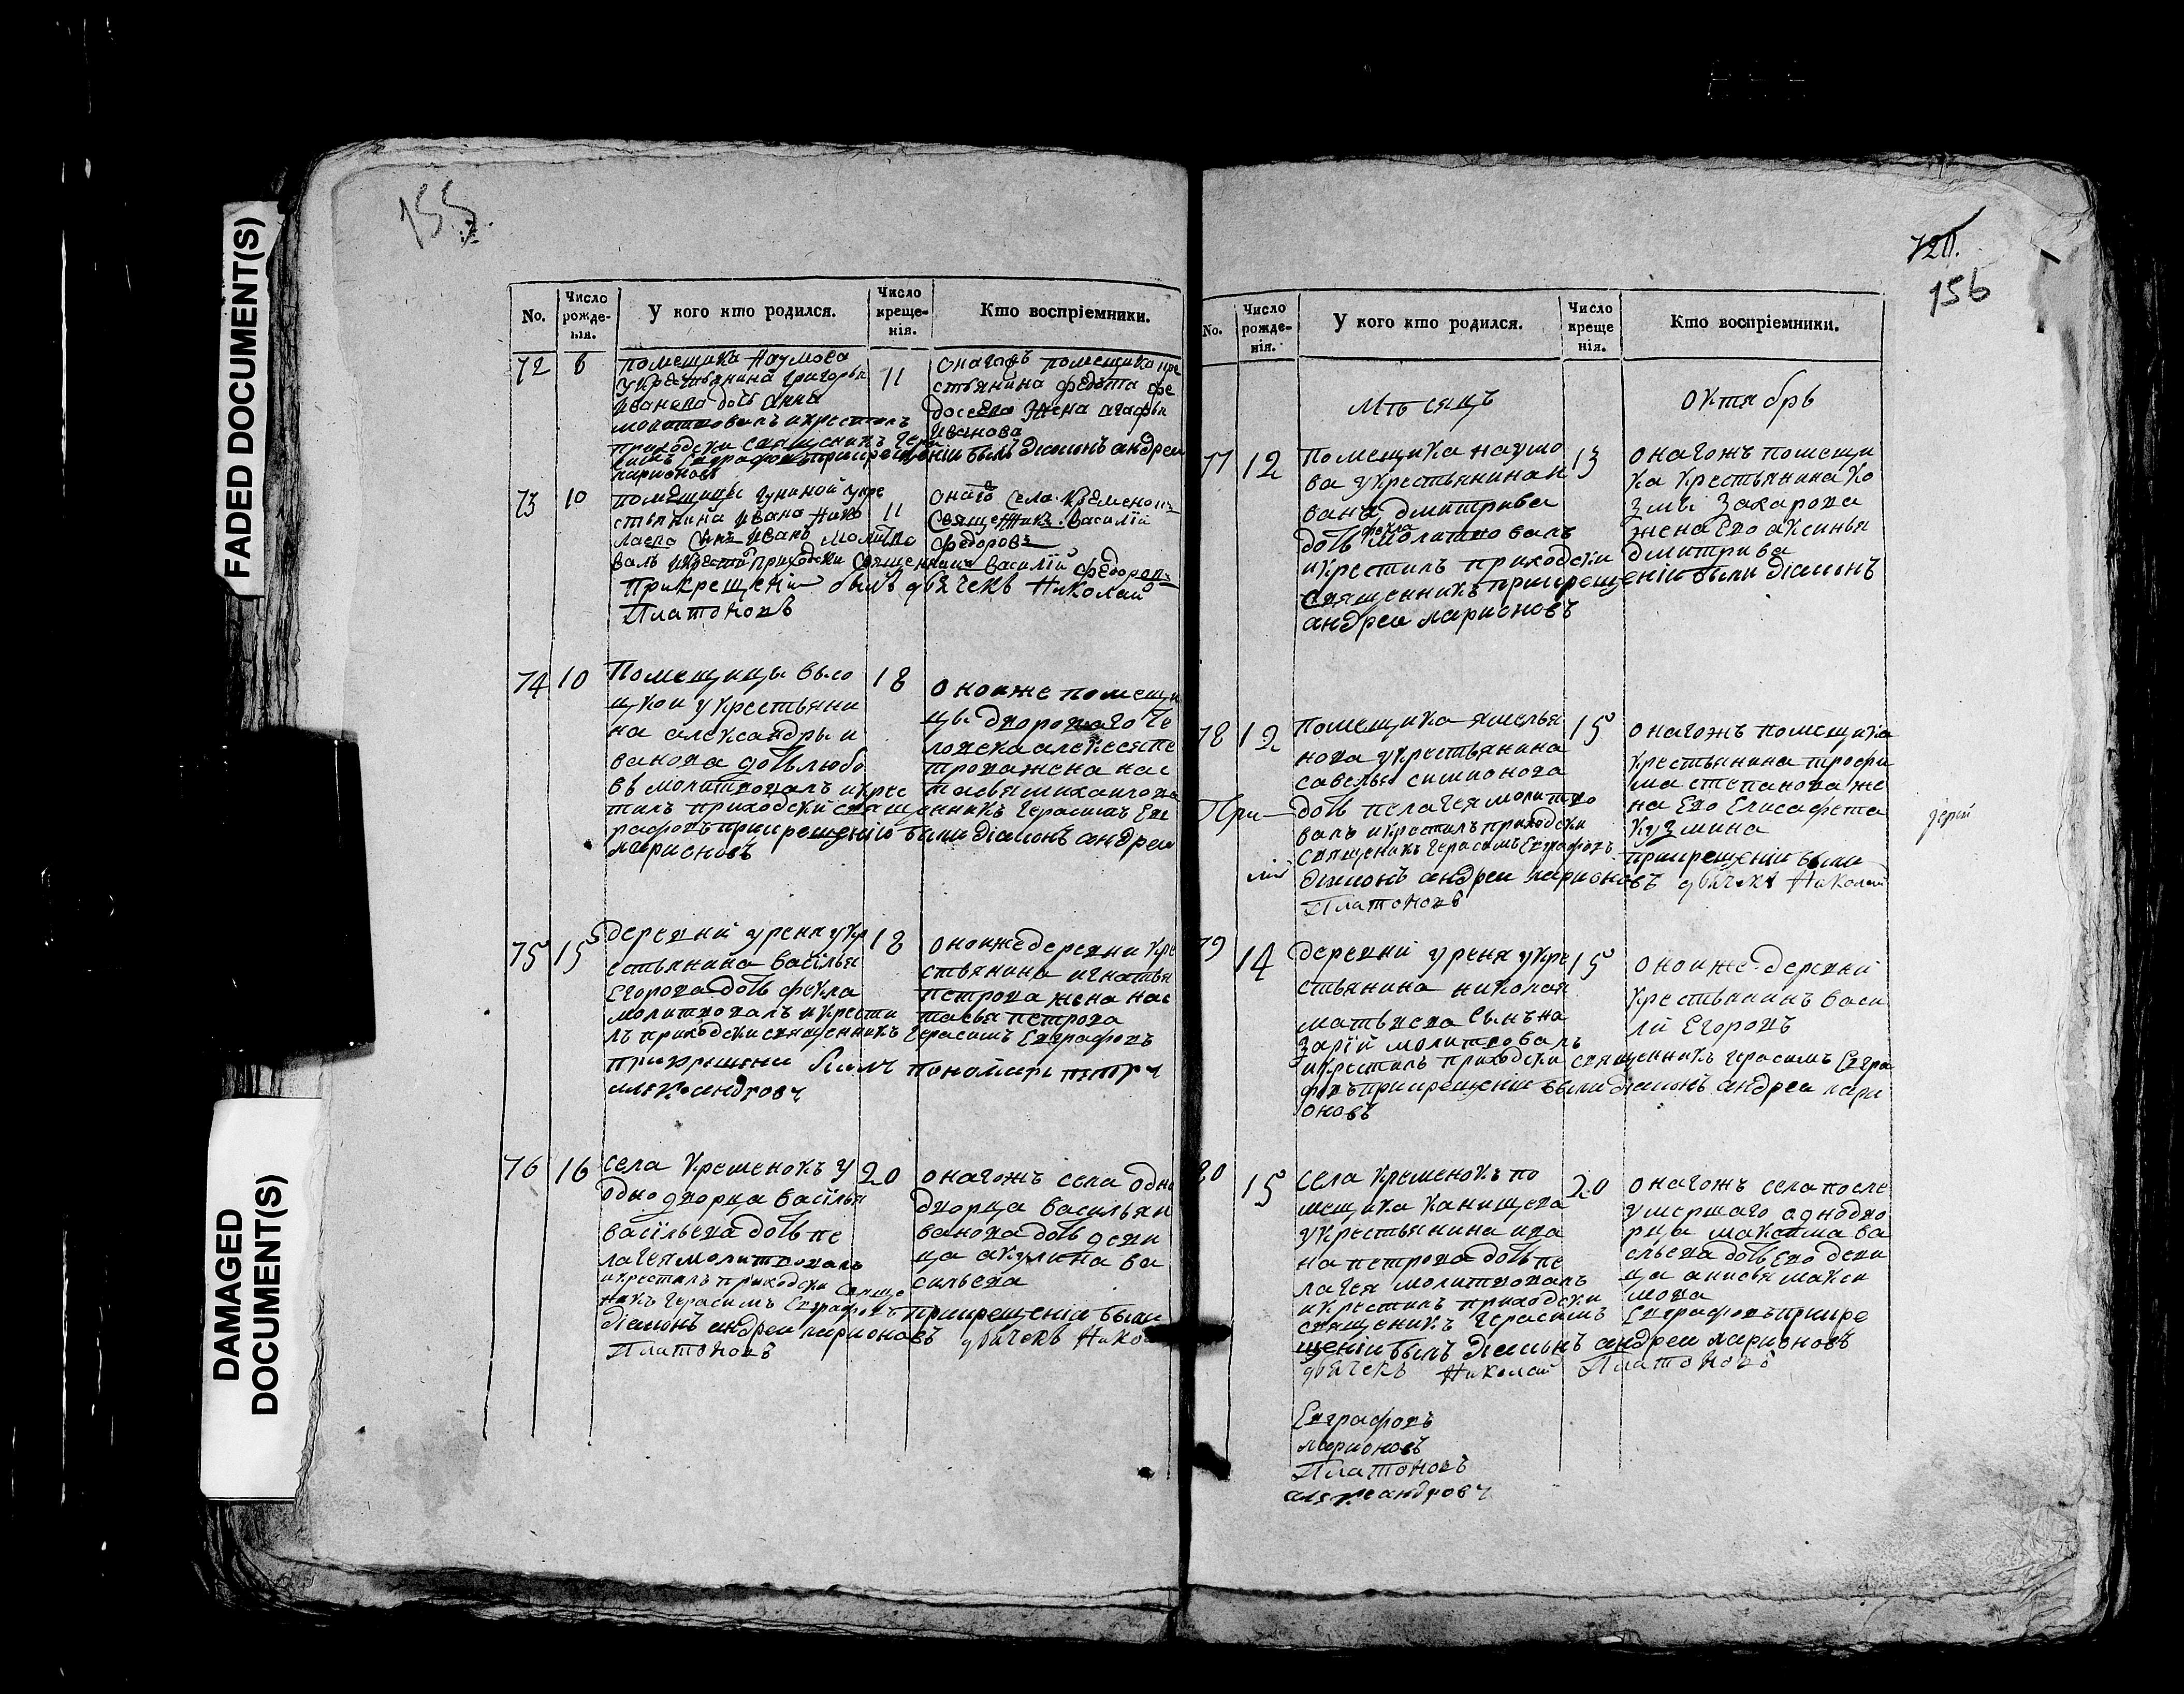 FADED DOCUMENT(S)
DAMAGED
DOCUMENT(S)
155.
No.
Число
рожде-
нія.
У кого кто родился.
Число
креще-
нія.
Кто воспріемники.
72
8
помещика Наумова
укрестьянина григорья
Иванова дочь Анна
молитвовалъ икрестилъ
приходски священникъ Гера
ларионовъ
11
онагожъ помещика кре
стьянина федота фе
досеева жена агафья
Иванова
былъ дiаконъ андреи
73
10
помещицы гуниной укре
стьянина Ивана Нико
лаева сынъ Иванъ молитво
валъ икрести приходски священникъ василїй федоровъ
прикрещенiи былъ дьячекъ Николай
Платоновъ
11
онаго села Кременокъ
священникъ василїй
федоровъ
74
10
Помещицы высо
цкои укрестьяни
на александры и
ванова дочь любо
вь молитвовалъ икрес
тилъ приходски священникъ герасимъ Евг
рафовъ прикрещенїи были дїаконъ андреи
ларионовъ
18
оноиже помещи
цы дворового че
ловека алексея пе
трова жена нас
тасья михаилова
75
15
деревни урени укр
естьянина василья
Егорова дочь фекла
молитвовалъ икрести
лъ приходски священникъ герасимъ Евграфовъ
прикрещени былъ пономарь петръ
александровъ
18
оноиже деревни кре
стьянина игнатья
петрова жена нас
тасья петрова
76
16
села Кременокъ у
однодворца василья
васїльева дочь пе
лагея молитвовалъ
икрестилъ приходски свяще
никъ герасимъ Евграфовъ прикрещенїи были
дїаконъ андреи ларионовъ дьячекъ Нико
Платоновъ
20
онагожъ села одно
дворца василья и
ванова дочь деви
ца акулина ва
сильева
720.
156
No.
Число
рожде-
нія.
У кого кто родился.
Число
креще
нія.
Кто воспріемники.
Мѣсяцъ
октябрь
77
12
Помещика наумо
ва укрестьянина и
вана дмитрива
дочь фекла молитвовалъ
икрестилъ приходски
священникъ прикрещенїи были дїаконъ
андреи ларионовъ
13
онагожъ помещи
ка крестьянина Ко
змы Захарова
жена Ево аксинья
дмитрива
78
12
помещика емелья
нова укрестьянина
савелья симионова
При
дочь пелагея молитво
валъ икрестилъ приходски
священикъ герасимъ Евграфовъ
дїаконъ андреи ларионовъ дьячекъ Николай
Платоновъ
15
онагожъ помещика
крестьянина трофи
ма степанова же
на Ево Елисафета
кузмина
прикрещенїи были
79
14
деревни урени укре
стьянина николая
матвеева сынъ на
зарїй молитвовалъ
икрестилъ приходски священникъ герасимъ Евгра
фовъ прикрещенїи были дїаконъ андреи лари
оновъ
15
оноиже деревни
крестьянинъ васи
лїй Егоровъ
80
15
села Кременокъ по
мещика Канищева
укрестьянина ива
на петрова дочь пе
лагея молитвовалъ
икрестилъ приходски
священикъ герасимъ Евграфовъ прикре
щенїи былъ дїаконъ андреи ларионовъ
дьячекъ Николай Платоновъ
20
онагожъ села после
умершаго однодво
рца максима ва
сльева дочь Ево деви
ца анисья макси
мова
Евграфовъ
ларионовъ
Платоновъ
александровъ